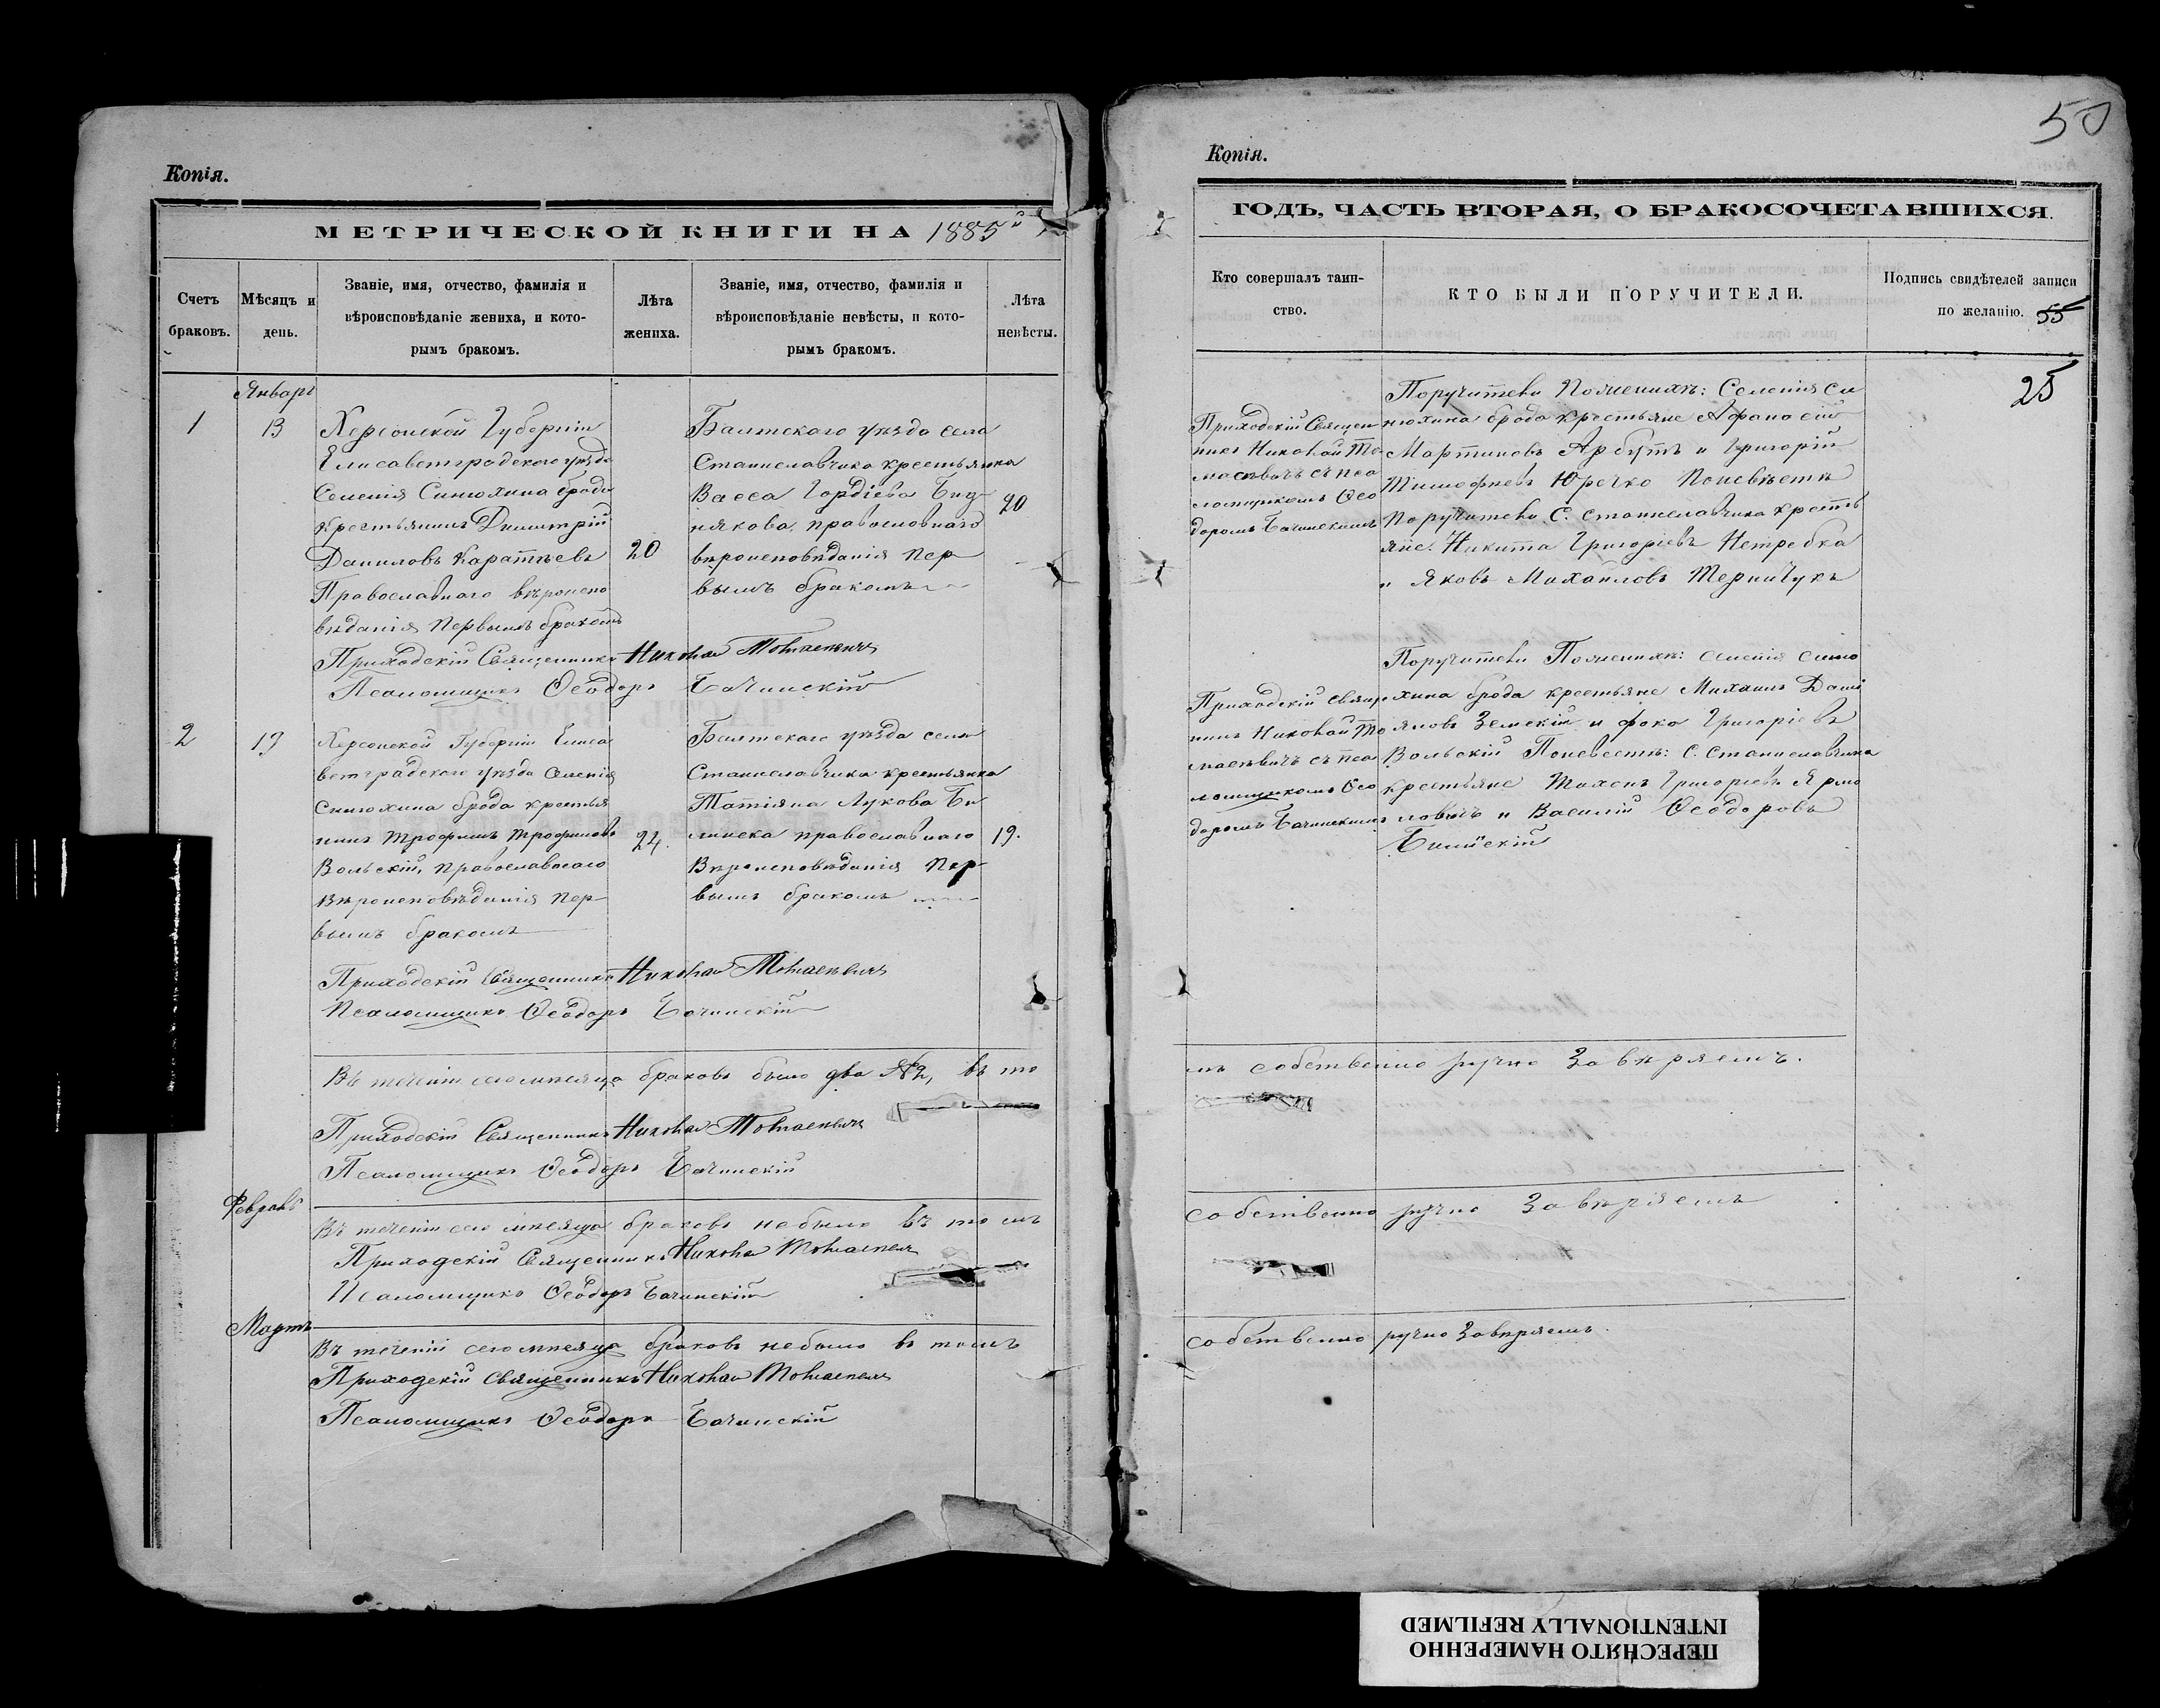 Копія.
МЕТРИЧЕСКОЙ КНИГИ НА 1885й
Счетъ браковъ.
Мѣсяцъ и день.
Званіе, имя, отчество, фамилія и
вѣроисповѣданіе жениха, и кото-
рымъ бракомъ.
Лѣта жениха.
Званіе, имя, отчество, фамилія и
вѣроисповѣданіе невѣсты, и кото-
рымъ бракомъ.
Лѣта невѣсты.
Январь
1
13
Херсонской Губерніи
Елисаветградского уѣзда
Селенія Синюхина брода
крестьянинъ Димитрій
Даниловъ Каратѣевъ
Православнаго вѣроиспо
вѣданія Первымъ бракомъ
20
Балтскаго уѣзда села
Станиславчика крестьянка
Васса Гордіева Бид-
някова, православнаго
вѣроисповѣданія пер-
вымъ бракомъ
20
Приходскій Священникъ Николай
Псаломщикъ Ѳеодоръ Бачинскій
2
19
Херсонской Губерніи Елиса
ветградского уѣзда Селенія
Синюхина брода крестья
нинъ Трофимъ Трофимовъ
Вольскій, православнаго
Вѣроисповѣданія пер-
вымъ бракомъ
24.
Балтскаго уѣзда села
Станиславчика крестьянка
Татіяна Лукова Би
линска православнаго
Вѣроисповѣданія Пер-
вымъ бракомъ
19.
Приходскій Священникъ Николай
Псаломщикъ Ѳеодоръ Бачинскій
Въ теченіи сего мѣсяца браковъ было два №2, въ то
Приходскій Священникъ Николай
Псаломщикъ Ѳеодоръ Бачинскій
Февраль
Въ теченіи сего мѣсяца браковъ небыло въ томъ
Приходскій Священникъ Николай
Псаломщикъ Ѳеодоръ Бачинскій
Мартъ
Въ теченіи сего мѣсяца браковъ небыло въ томъ
Приходскій Священникъ Николай
Псаломщикъ Ѳеодоръ Бачинскій
50
Копія.
ГОДЪ, ЧАСТЬ ВТОРАЯ, О БРАКОСОЧЕТАВШИХСЯ.
Кто совершалъ таин-
ство.
КТО БЫЛИ ПОРУЧИТЕЛИ.
Подпись свидѣтелей записи
по желанію.
55
25
Приходскій Священ
никъ Николай То
съ пса
ломщикомъ Ѳео
доромъ Бачинскимъ
Поручители По женихѣ: Селенія Си
нюхина брода крестьяне Афанасій
Мартиновъ Арбутъ и Григорій
Тимофѣевъ Юречко По невѣстѣ
Поручители С. Станиславчика кресть
яне: Никита Григоріевъ Нетребка
и Яковъ Михайловъ Терничукъ
Приходскій Свящ
никъ Николай То
съ пса
ломщикомъ Ѳео
доромъ Бачинскимъ
Поручители По женихѣ: селенія Синю
хина брода крестьяне Михаилъ Дані
яловъ Земскій и Фока Григоріевъ
Вольскій По невестѣ: С. Станиславчика
крестьяне Григоріевъ Ярмо
ловичъ и Василій Ѳеодоровъ
Билинскій
мъ собственно ручно Завѣряемъ.
собственно ручно Завѣряемъ
собственно ручно Завѣряемъ.
ПЕРЕСНЯТО НАМЕРЕННО
INTENTIONALLY REFILMED